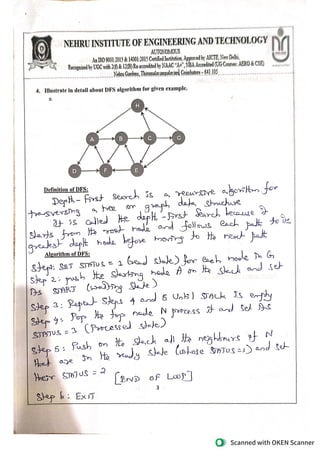 NEHRU INSTITUTE OF ENGINEERING AND TECHNOLOGY
AUTONOMOUS
An ISO 9001:2015 & 14001:2015 Certified Institution, Approved by AICTE, New Delhi,
Recognized by UGC with 2(f) & 12(B) Re-accredited by NAAC "A+", NBA Accredited (UG Courses: AERO & CSE)
Nehru Gardens, Thirumalayampalayam, Coimbatore - 641 105
4. Illustrate in detail about DFS algorithm for given example.
H
A
B
C
G
D
F
E
Definition of DFS:
Depth - First Search is a recursive algorithm for
transversing a tree or graph data structure
It is called the depth - first Search because it
Starts from the root node and follows each path to its
greatest depth node before moving to the next path
Algorithm of DFS:
Step 1: SET STATUS = 1 (ready state) for each node in G
Step 2: push the Starting node A on the stack and set
its START (waiting State)
Step 3: Repeat Steps 4 and 5 Until STACK is empty
Step 4: Pop the top node N process it and set its
STATUS = 3 (Processed state)
Step 5: Push on the stack all the neighbours of N
that are in the ready state (whose STATUS = 1) and set
their STATUS = 2
[END OF LOOP]
3
Step 6: EXIT
Scanned with OKEN Scanner